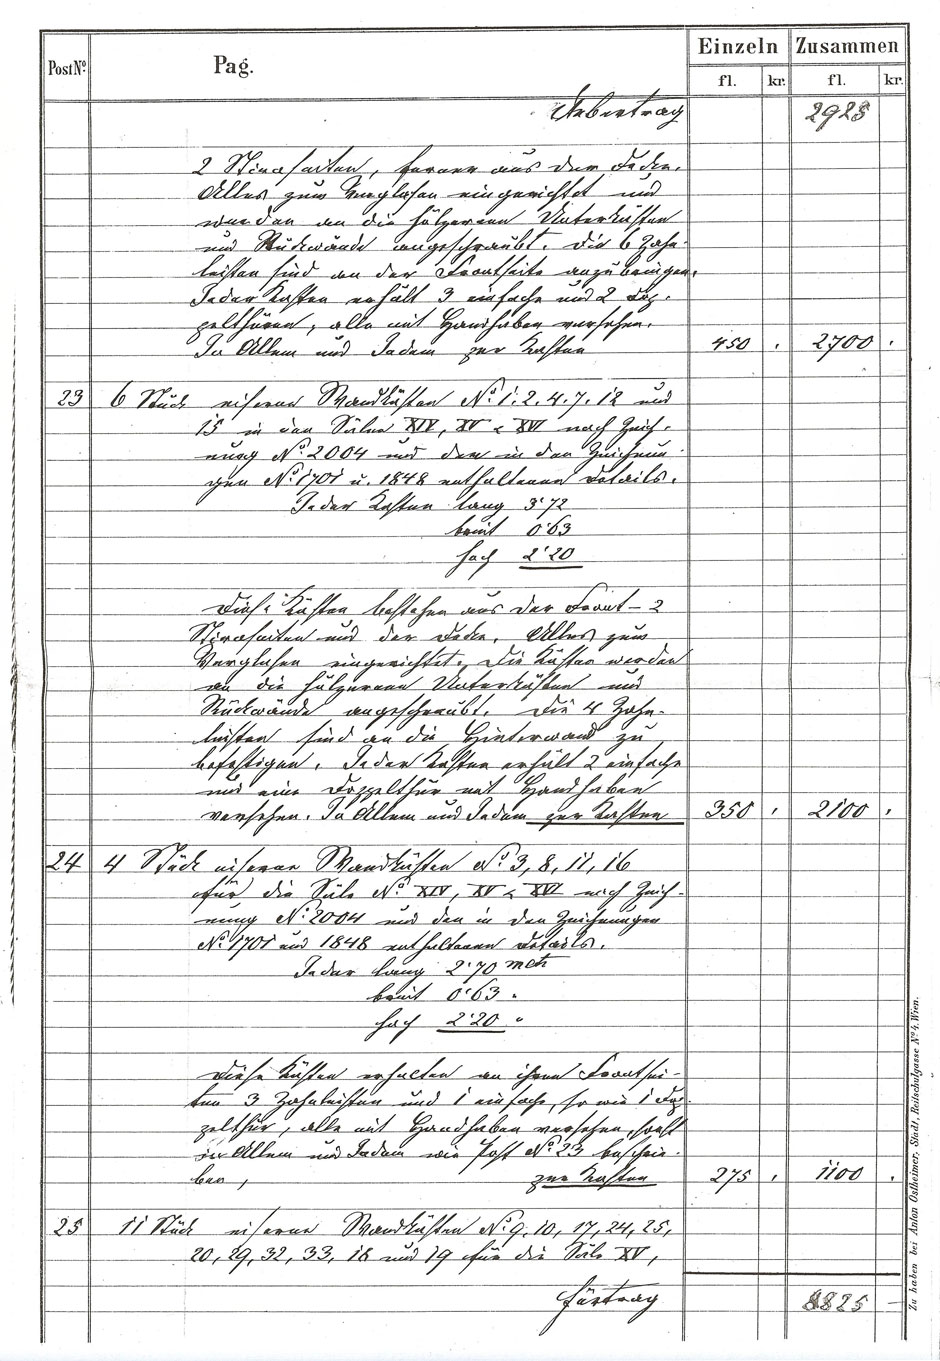 Post Nº Pag. Einzeln Zusammen
fl. kr. fl. kr.
Uebertrag 2925
2 Stirnseiten, ferner aus der Decke.
Alles zum Verglasen eingerichtet und
werden an die hölzernen Unterkästen
und Rückwände angeschraubt. Die 6 Zahn-
leisten sind an der Frontseite anzubringen.
Jeder Kasten erhält 3 einfache und 2 Dop-
pelthüren, alle mit Handhaben versehen.
In Allem und Jedem per Kasten 450 . 2700 .
23 6 Stück eiserne Wandkästen Nº 1. 2. 4. 7. 12 und
15 in den Sälen XIV, XV & XVI nach Zeich-
nung Nº 2004 und den in den Zeichnun-
gen Nº 1701 u. 1848 enthaltenen Details.
Jeder Kasten lang 3'72
breit 0'63
hoch 2'20
Diese Kästen bestehen aus der Front- 2
Stirnseiten und der Decke. Alles zum
Verglasen eingerichtet. Die Kästen werden
an die hölzernen Unterkästen und
Rückwände angeschraubt. Die 4 Zahn-
leisten sind an die Hinterwand zu
befestigen. Jeder Kasten erhält 2 einfache
und eine Doppelthür mit Handhaben
versehen. In Allem und Jedem per Kasten 350 . 2100 .
24 4 Stück eiserne Wandkästen Nº 3, 8, 11, 16
für die Säle Nº XIV, XV & XVI nach Zeich-
nung Nº 2004 und den in den Zeichnungen
Nº 1701 und 1848 enthaltenen Details.
Jeder lang 2'70 mtr
breit 0'63 "
hoch 2'20 "
Diese Kästen erhalten an ihren Frontsei-
ten 3 Zahnleisten und 1 einfache, so wie 1 Dop-
pelthür, alle mit Handhaben versehen, sonst
in Allem und Jedem wie Post Nº 23 beschrie-
ben, per Kasten 275 . 1100 .
25 11 Stück eiserne Wandkästen Nº 9, 10, 17, 24, 25,
20, 29, 32, 33, 18 und 19 für die Säle XV,
Fürtrag 8825 –
Zu haben bei Anton Ostheimer, Stadt, Reitschulgasse Nº 4. Wien.